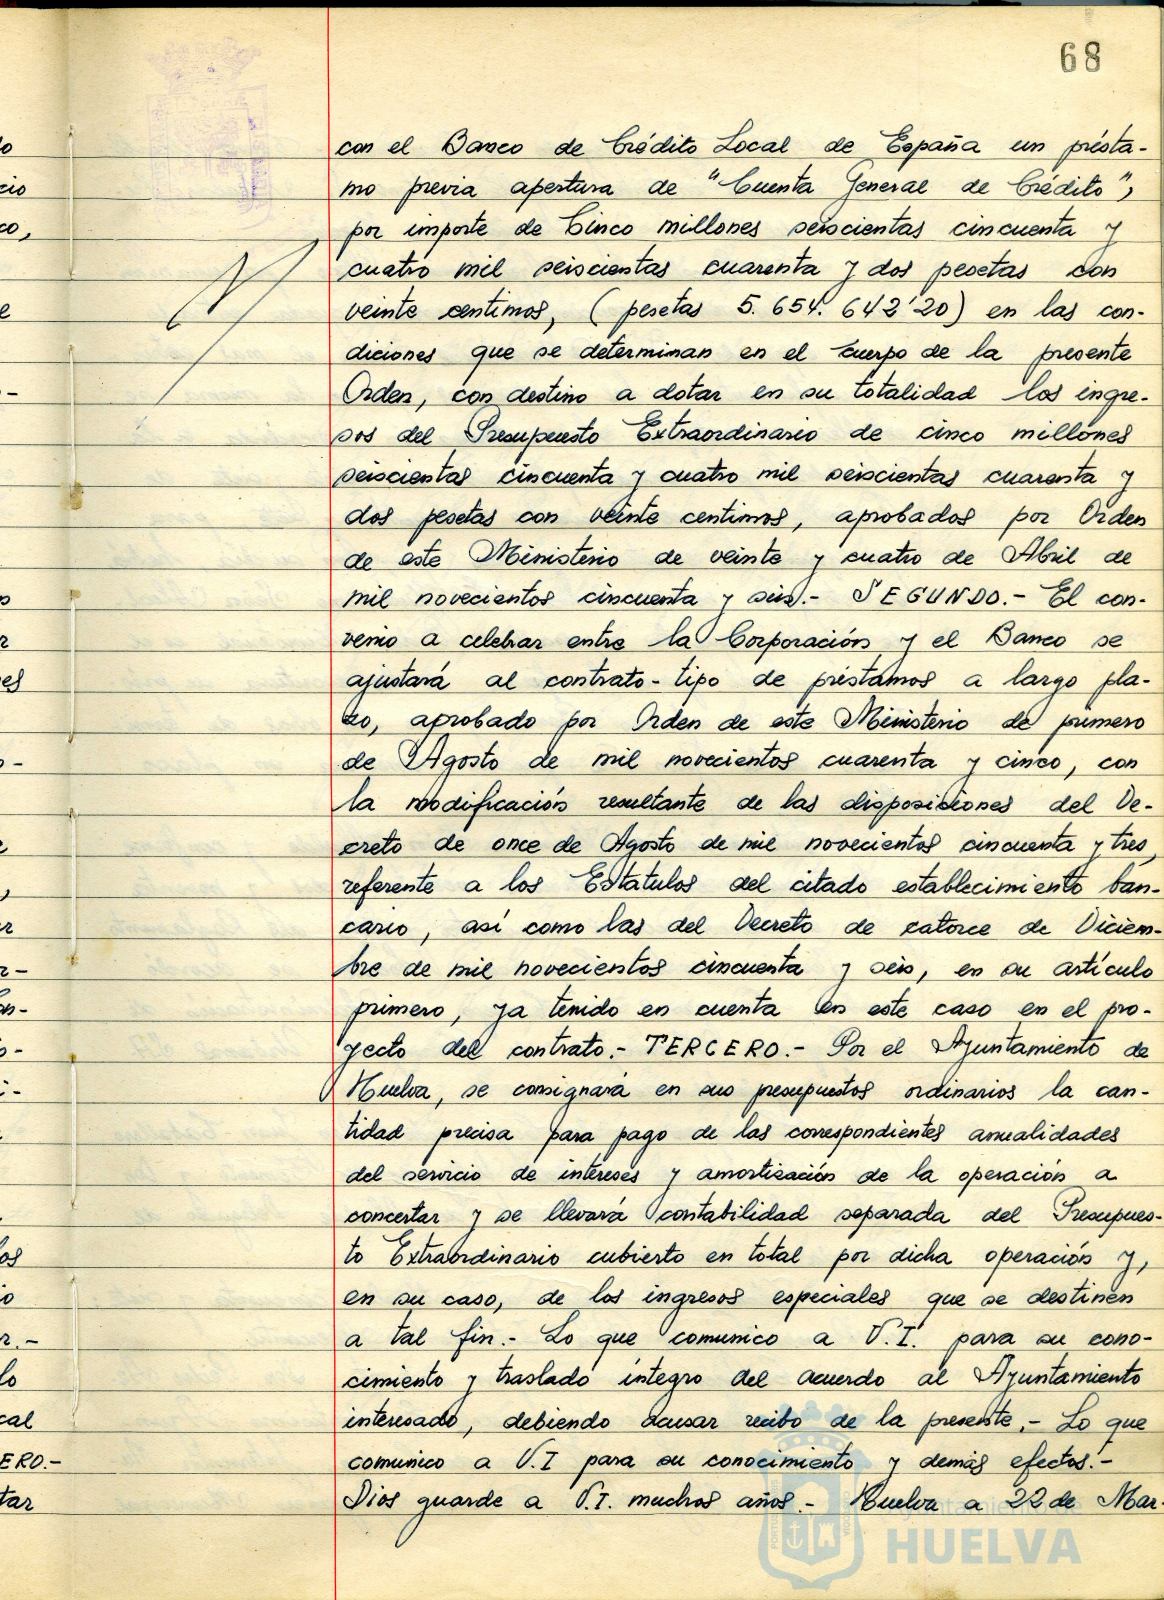 68
con el Banco de Crédito Local de España un présta-
mo previa apertura de "Cuenta General de Crédito",
por importe de Cinco millones seiscientas cincuenta y
cuatro mil seiscientas cuarenta y dos pesetas con
veinte centimos, (pesetas 5.654.642'20) en las con-
diciones que se determinan en el cuerpo de la presente
Orden, con destino a dotar en su totalidad los ingre-
sos del Presupuesto Extraordinario de cinco millones
seiscientas cincuenta y cuatro mil seiscientas cuarenta y
dos pesetas con veinte centimos, aprobados por Orden
de este Ministerio de veinte y cuatro de Abril de
mil novecientos cincuenta y seis.- SEGUNDO.- El con-
venio a celebrar entre la Corporación y el Banco se
ajustará al contrato-tipo de préstamos a largo pla-
zo, aprobado por Orden de este Ministerio de primero
de Agosto de mil novecientos cuarenta y cinco, con
la modificación resultante de las disposiciones del De-
creto de once de Agosto de mil novecientos cincuenta y tres,
referente a los Estatutos del citado establecimiento ban-
cario, así como las del Decreto de catorce de Diciem-
bre de mil novecientos cincuenta y seis, en su artículo
primero, ya tenido en cuenta en este caso en el pro-
yecto del contrato.- TERCERO.- Por el Ayuntamiento de
Huelva, se consignará en sus presupuestos ordinarios la can-
tidad precisa para pago de las correspondientes anualidades
del servicio de intereses y amortización de la operación a
concertar y se llevará contabilidad separada del Presupues-
to Extraordinario cubierto en total por dicha operación y,
en su caso, de los ingresos especiales que se destinen
a tal fin.- Lo que comunico a V.I. para su cono-
cimiento y traslado integro del acuerdo al Ayuntamiento
interesado, debiendo acusar recibo de la presente.- Lo que
comunico a V.I para su conocimiento y demás efectos.-
Dios guarde a V.I. muchos años.- Huelva a 22 de Mar-
Ayuntamiento de
HUELVA